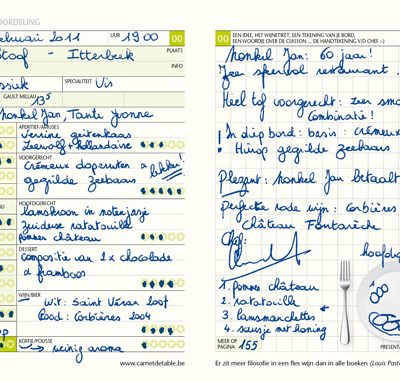 OORDELING
Februari 2011
UUR
19 00
00
PLAATS
toof - Itterbeek
INFO
SPECIALITEIT
ssiek
Vis
GAULT MILLAU
13,5
nonkel Jan, Tante Yvonne
APERITIEF/AMUSES
Verrine geitenkaas
Zeewolf + hollandaise
VOORGERECHT
crèmeux doperwten
lekker!
gegrilde zeebaars
HOOFDGERECHT
lamskroon in notenjasje
zuiderse ratatouille
pommes château
DESSERT
compositie van 2 x chocolade
framboos
WIJN/BIER
wit: Saint Véran 2007
Rood: Corbières 2004
KOFFIE/POUSSE
weinig aroma
www.carnetdetable.be
00
EEN IDEE, HET WIJNETIKET, EEN TEKENING VAN JE BORD,
EEN WOORDJE OVER DE CUISSON ... DE HANDTEKENING V/D CHEF :-)
nonkel Jan: 60 jaar!
Zeer sfeervol restaurant
Heel tof voorgerecht: zeer
Combinatie!
In diep bord: basis: crèmeux
gegrilde zeebaars
Plezant: nonkel Jan betaalt
Perfecte rode wijn: Corbières
Château Fontarèche
Chef:
hoofdg
1. pommes château
2. ratatouille
3. lamskoteletten
4. sausje met honing
MEER OP
PAGINA
155
PRESENTA
Er zit meer filosofie in een fles wijn dan in alle boeken (Louis Past